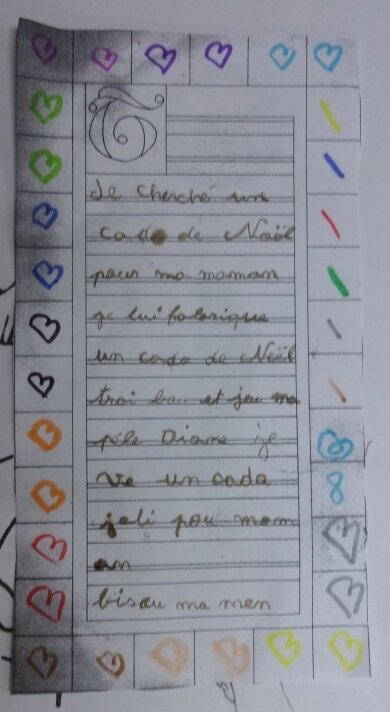 Je cherché une
cado de Noël
pour ma maman
je lui fabrique
un cado de Noël
trai bau et jeu ma
pèle Diane je
ve un cada
joli pou mam
an
bisau ma men